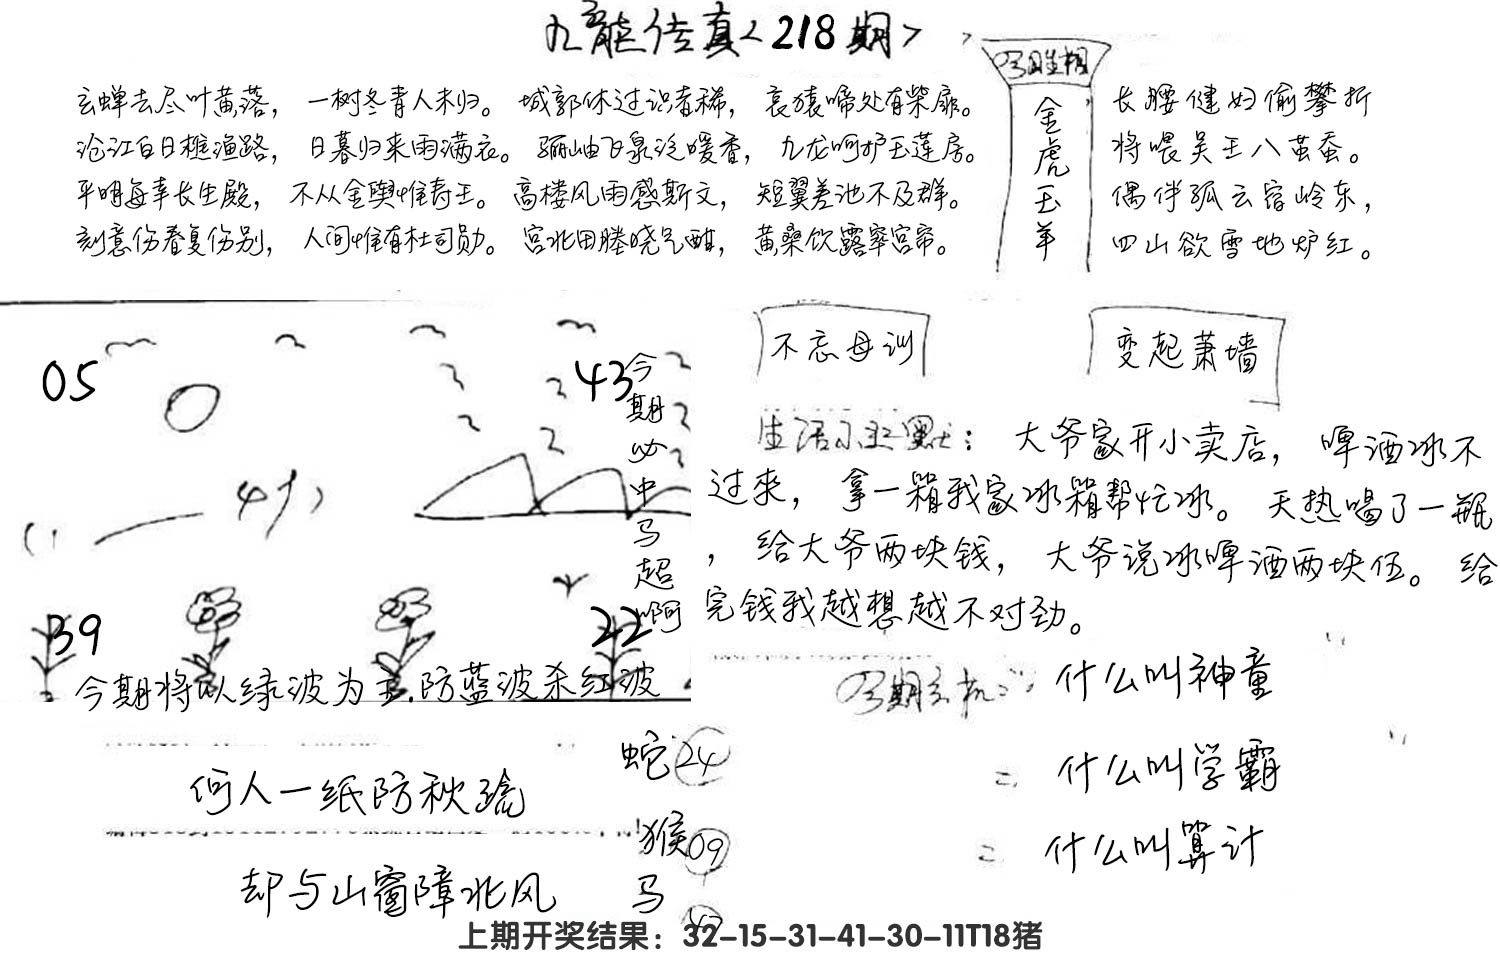 九龙传真<218期>
今期生相
金虎玉羊
玄蝉去尽叶黄落，一树冬青人未归。城郭休过识者稀，哀猿啼处有柴扉。
沧江白日樵渔路，日暮归来雨满衣。骊岫飞泉泛暖香，九龙呵护玉莲房。
平明每幸长生殿，不从金舆惟寿王。高楼风雨感斯文，短翼差池不及群。
刻意伤春复伤别，人间惟有杜司勋。宫北田塍晓气酣，黄桑饮露窣宫帘。
长腰健妇偷攀折
将喂吴王八茧蚕。
偶伴孤云宿岭东，
四山欲雪地炉红。
05
43
39
22
今期必中马超啊
今期将以绿波为主.防蓝波杀红波
不忘母训
变起萧墙
生活小幽默：大爷家开小卖店，啤酒冰不
过来，拿一箱我家冰箱帮忙冰。天热喝了一瓶
，给大爷两块钱，大爷说冰啤酒两块伍。给
完钱我越想越不对劲。
今期玄机：什么叫神童
=什么叫学霸
=什么叫算计
何人一纸防秋疏
却与山窗障北风
蛇24
猴09
马
上期开奖结果：32-15-31-41-30-11T18猪